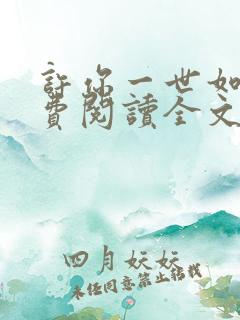 許你一世如
費閱讀全文
四月妖妖
未经同意禁止转载